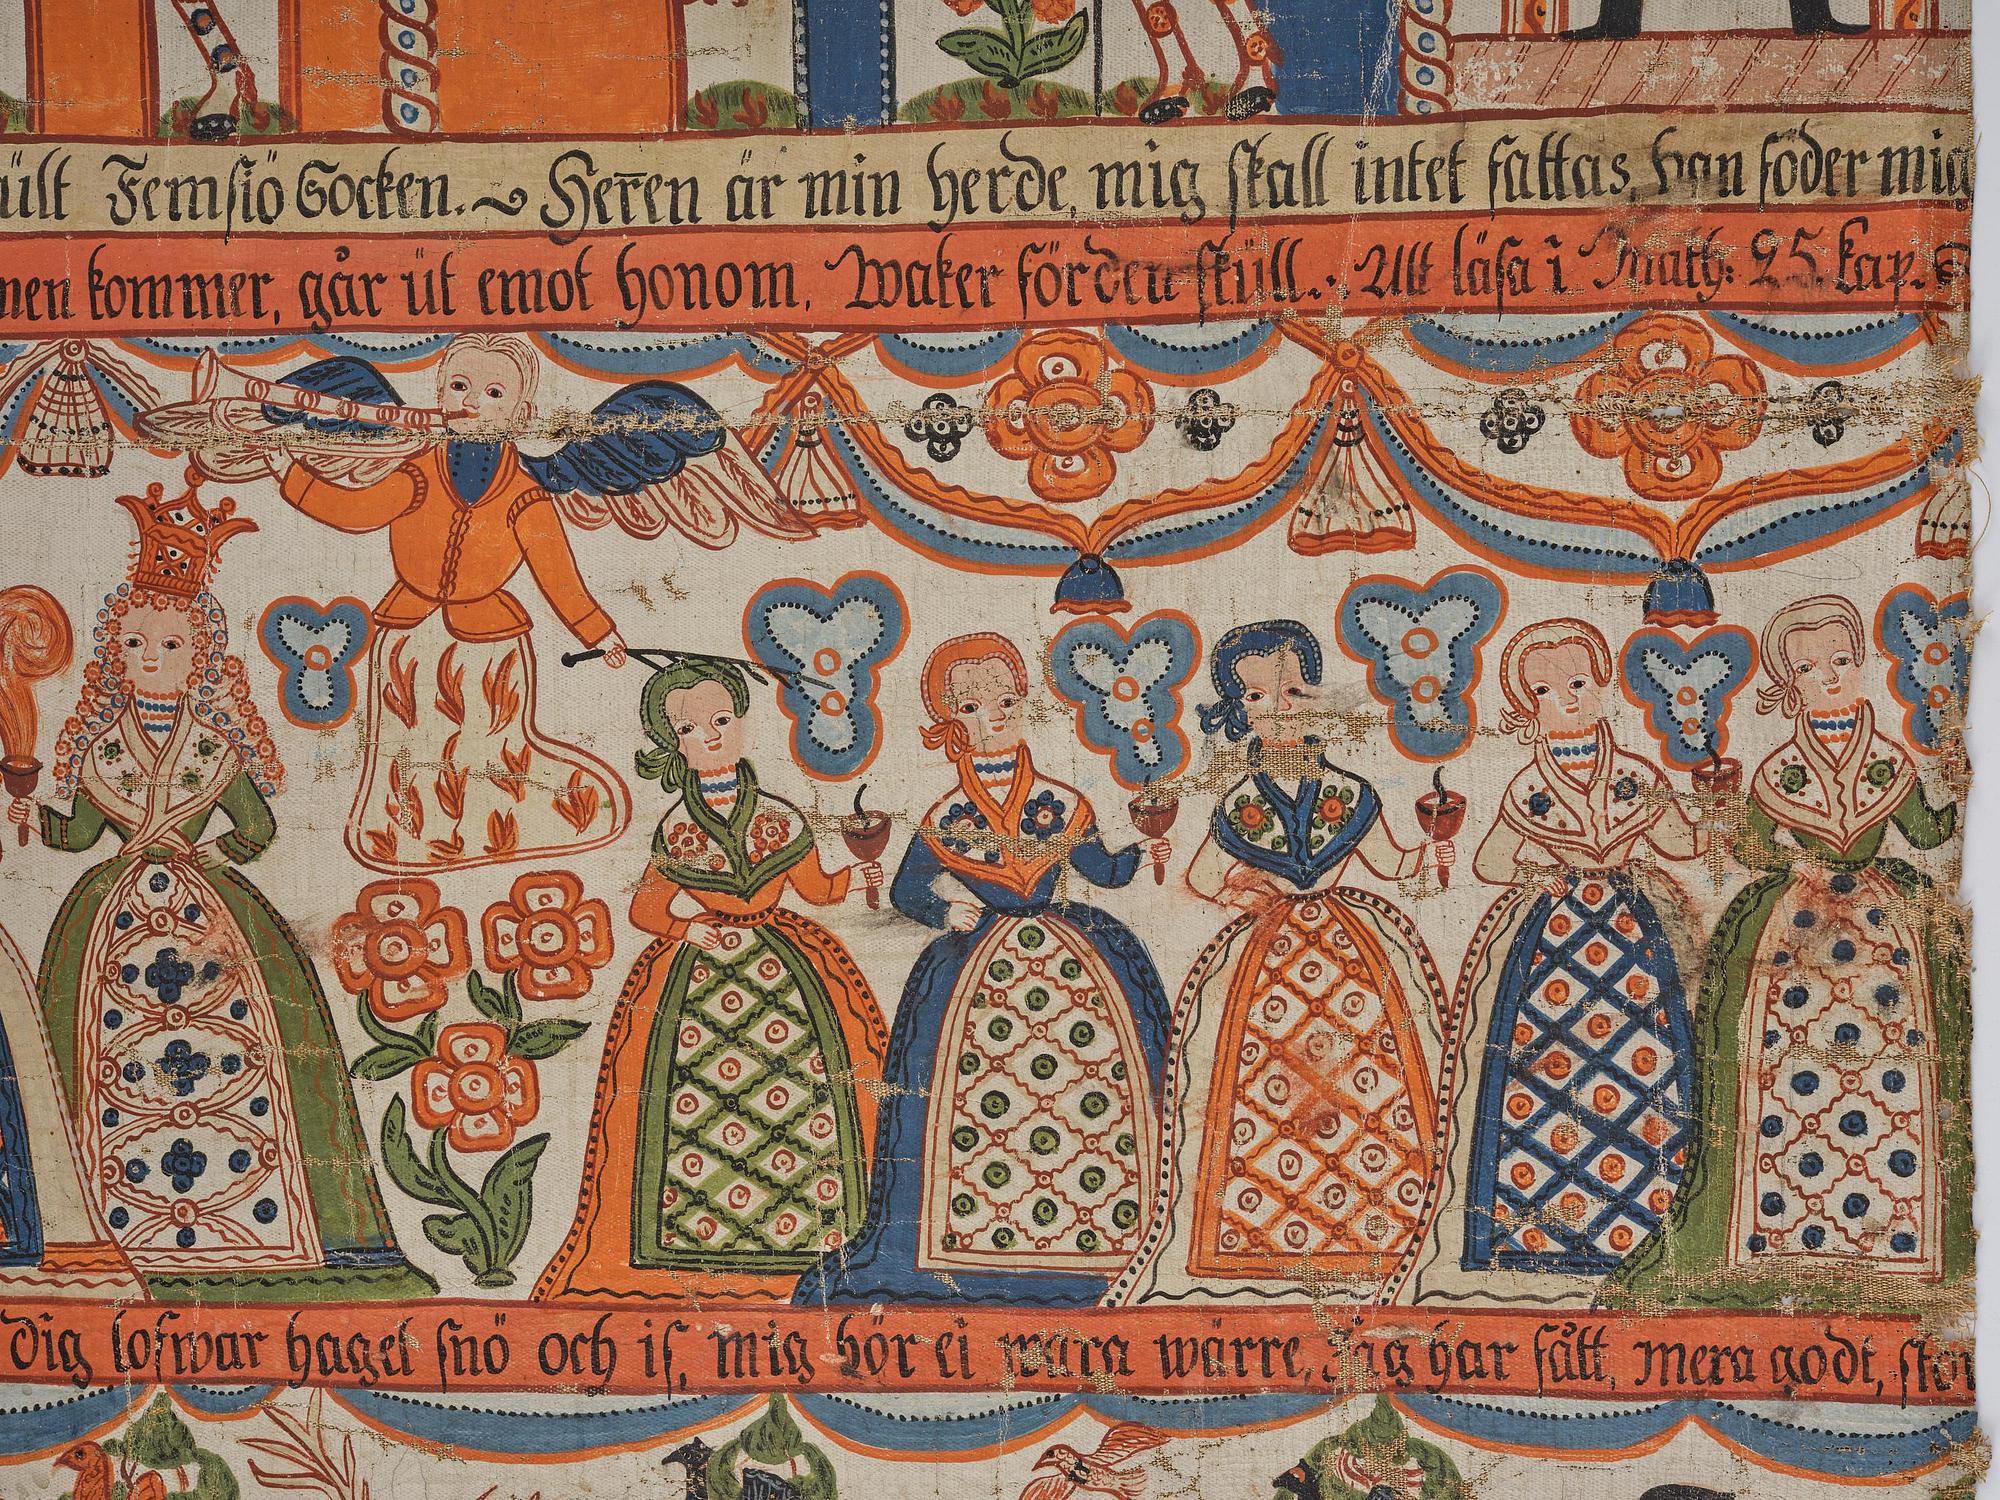 Femsiö Socken. ~ Herren är min herde, mig skall intet fattas, han föder mig
kommer, går üt emot honom. Waker förden sküll. Att läsa i Math: 25. kap.
dig lofwar hagel snö och is, mig bör ei wara wärre, Jag har fått, mera godt,